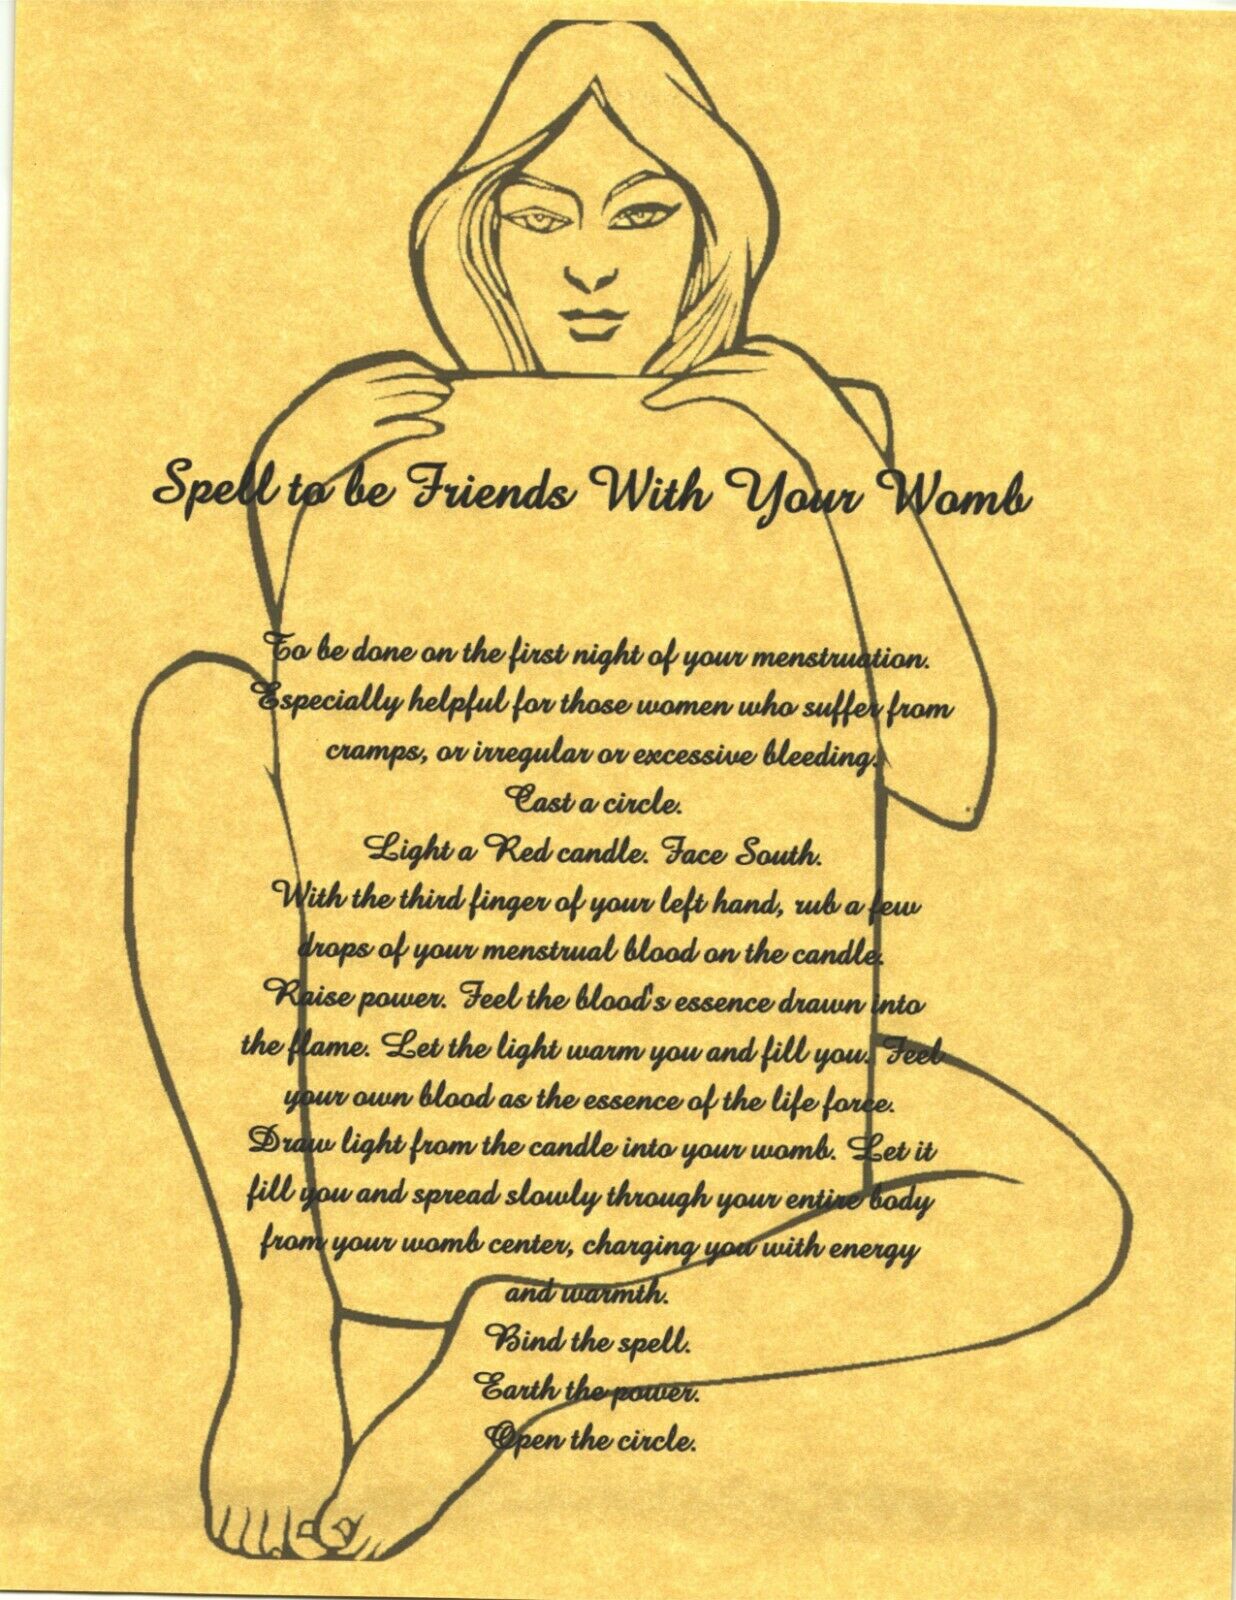 Spell to be Friends With Your Womb
To be done on the first night of your menstruation.
Especially helpful for those women who suffer from
cramps, or irregular or excessive bleeding.
Cast a circle.
Light a Red candle. Face South.
With the third finger of your left hand, rub a few
drops of your menstrual blood on the candle.
Raise power. Feel the blood's essence drawn into
the flame. Let the light warm you and fill you. Feel
your own blood as the essence of the life force.
Draw light from the candle into your womb. Let it
fill you and spread slowly through your entire body
from your womb center, charging you with energy
and warmth.
Bind the spell.
Earth the power.
Open the circle.